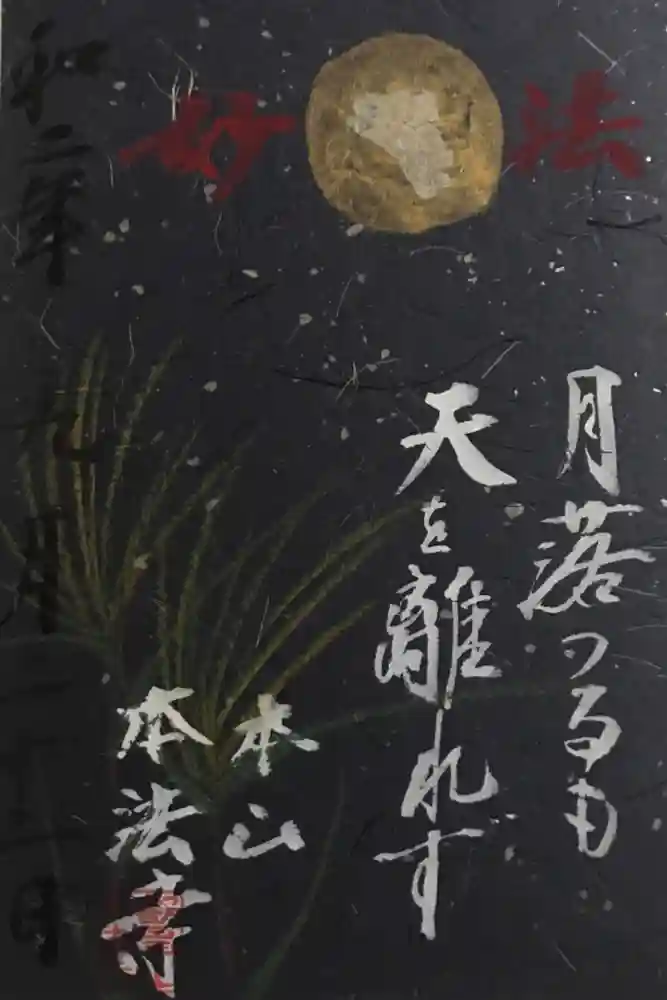 妙法
月落つるも
天を離れず
本山
本法寺
和二年九月二十一日